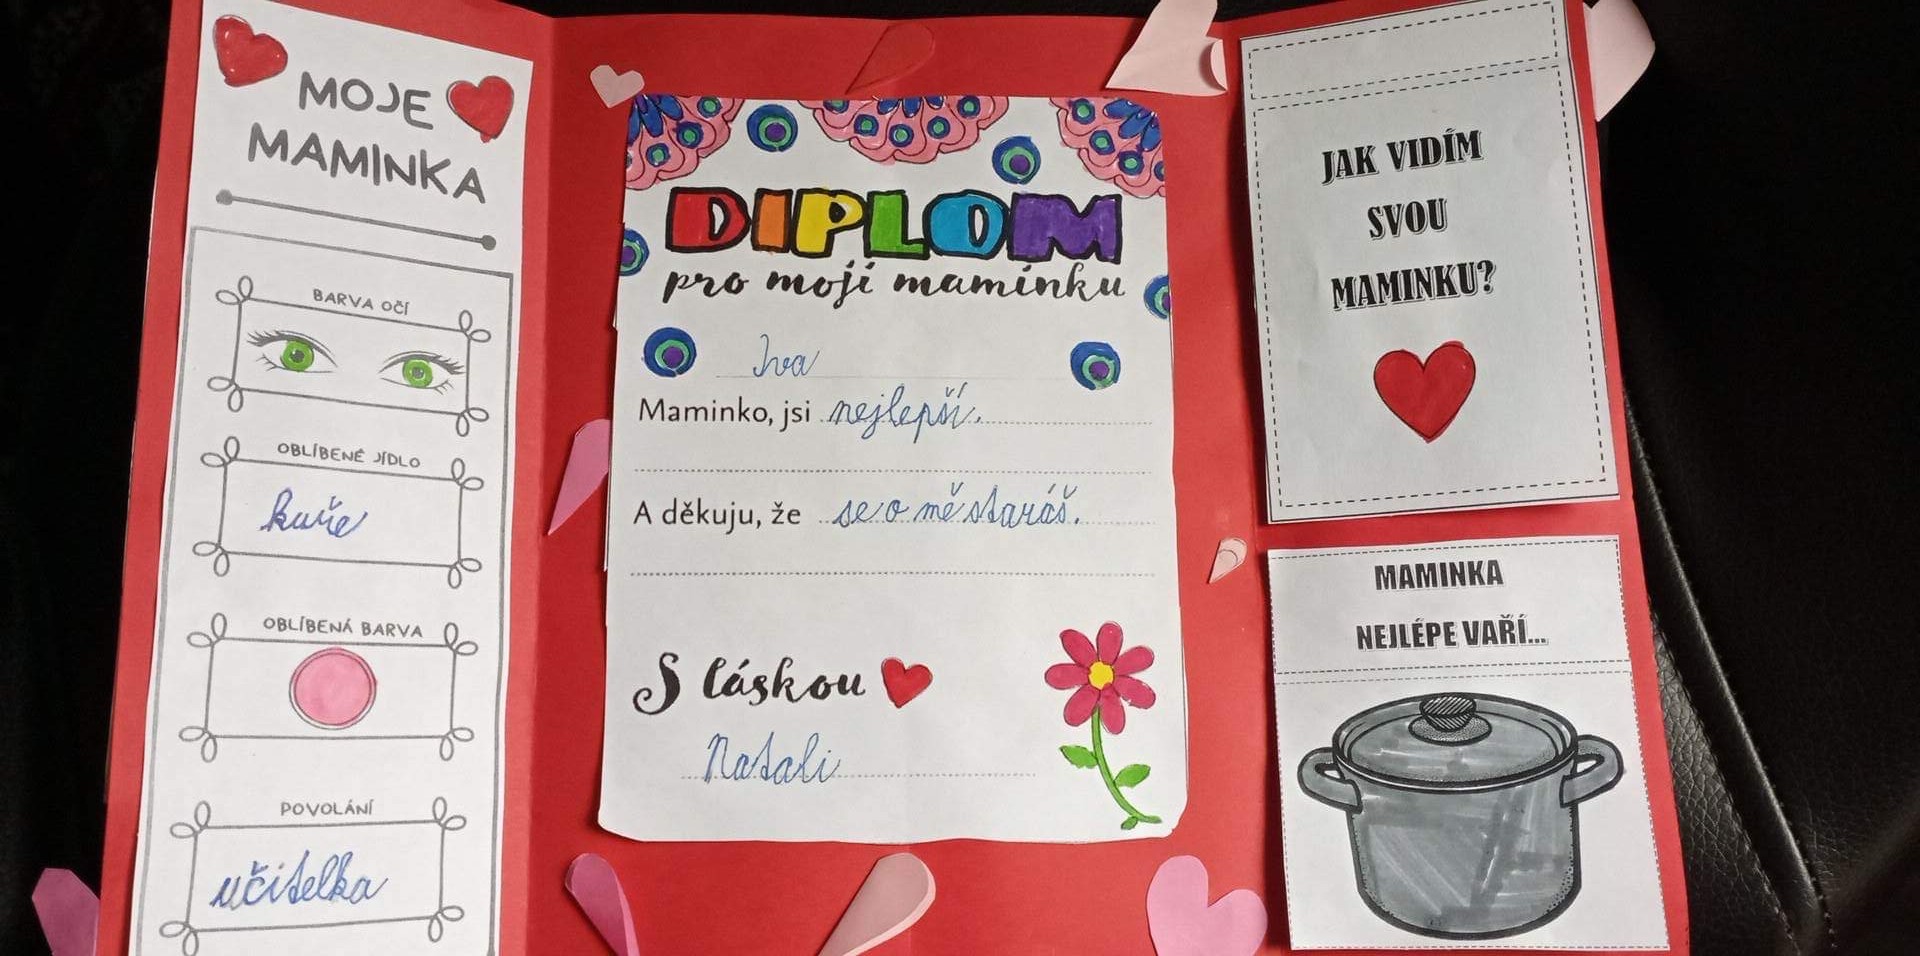 MOJE
MAMINKA
BARVA OČÍ
OBLÍBENÉ JÍDLO
kuře
OBLÍBENÁ BARVA
POVOLÁNÍ
učitelka
DIPLOM
pro moji maminku
Iva
Maminko, jsi nejlepší.
A děkuju, že se o mě staráš.
S láskou
Natali
JAK VIDÍM
SVOU
MAMINKU?
MAMINKA
NEJLÉPE VAŘÍ...